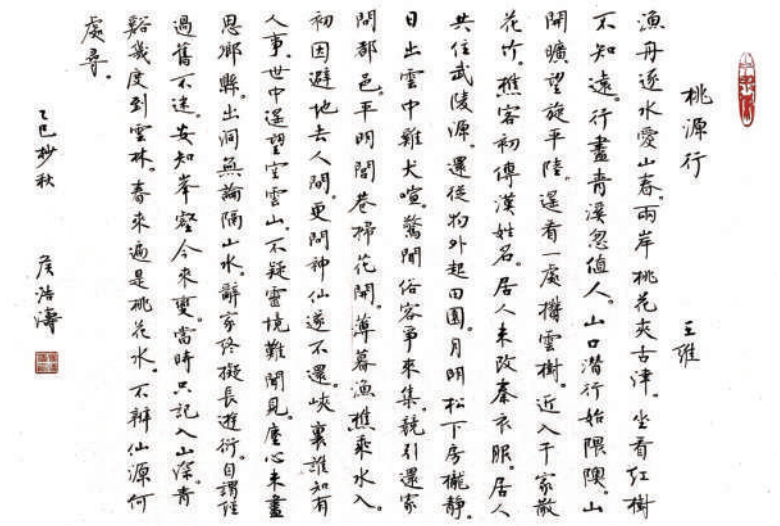 桃源行
王維
漁舟逐水愛山春。兩岸桃花夾古津。坐看紅樹
不知遠。行盡青溪忽值人。山口潛行始隈隩。山
開曠望旋平陸。遥看一處攢雲樹。近入千家散
花竹。樵客初傳漢姓名。居人未改秦衣服。居人
共住武陵源。還從物外起田園。月明松下房櫳靜。
日出雲中雞犬喧。驚聞俗客爭來集。競引還家
問都邑。平明閭巷掃花開。薄暮漁樵乘水入。
初因避地去人間。更問神仙遂不還。峽裏誰知有
人事。世中遥望空雲山。不疑靈境難聞見。塵心未盡
思鄉縣。出洞無論隔山水。辭家終擬長遊衍。自謂經
過舊不迷。安知峯壑今來變。當時只記入山深。青
谿幾度到雲林。春來遍是桃花水。不辨仙源何
處尋。
乙巳杪秋
侯浩濤